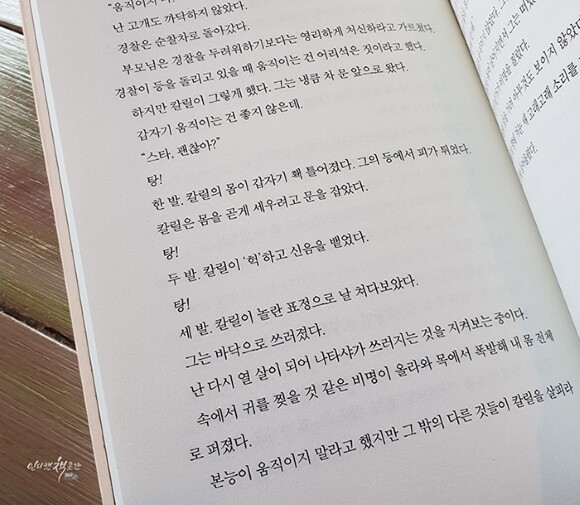 "움직이지 마
난 고개도 까닥하지 않았다.
경찰은 순찰차로 돌아갔다.
부모님은 경찰을 두려워하기보다는 영리하게 처신하라고 가르쳤다.
경찰이 등을 돌리고 있을 때 움직이는 건 어리석은 짓이라고 했다.
하지만 칼릴이 그렇게 했다. 그는 냉큼 차 문 앞으로 왔다.
갑자기 움직이는 건 좋지 않은데.
"스타, 괜찮아?"
탕!
한 발. 칼릴의 몸이 갑자기 홱 틀어졌다. 그의 등에서 피가 튀었다.
칼릴은 몸을 곧게 세우려고 문을 잡았다.
탕!
두 발. 칼릴이 '헉'하고 신음을 뱉었다.
탕!
세 발. 칼릴이 놀란 표정으로 날 쳐다보았다.
그는 바닥으로 쓰러졌다.
난 다시 열 살이 되어 나타샤가 쓰러지는 것을 지켜보는 중이다.
속에서 귀를 찢을 것 같은 비명이 올라와 목에서 폭발해 내 몸 전체
로 퍼졌다.
본능이 움직이지 말라고 했지만 그 밖의 다른 것들이 칼릴을 살피라
보이지 않았다
고래고래 소리를